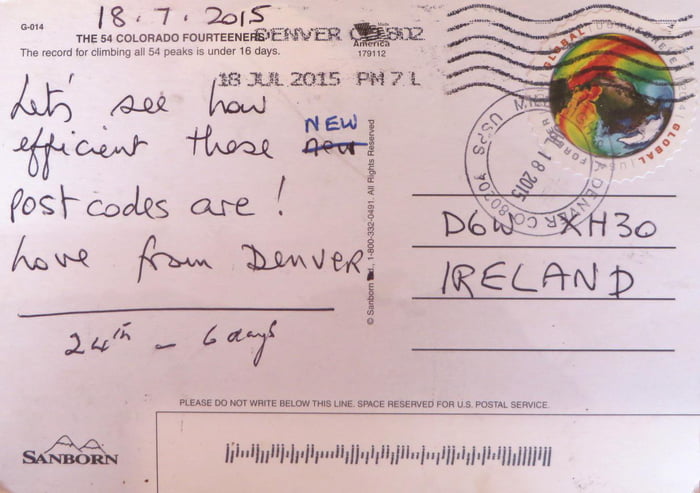 G-014
18.7.2015
THE 54 COLORADO FOURTEENERS
The record for climbing all 54 peaks is under 16 days.
DENVER CO 802
Made
America
179112
18 JUL 2015 PM 7 L
Let's see how
efficient these NEW
postcodes are!
Love from Denver
24th - 6 days
© Sanborn Ltd., 1-800-332-0491. All Rights Reserved
GLOBAL
FOREVER
USPS
DENVER CO 80202
JUL 18 2015
D6W XH30
IRELAND
PLEASE DO NOT WRITE BELOW THIS LINE. SPACE RESERVED FOR U.S. POSTAL SERVICE.
SANBORN